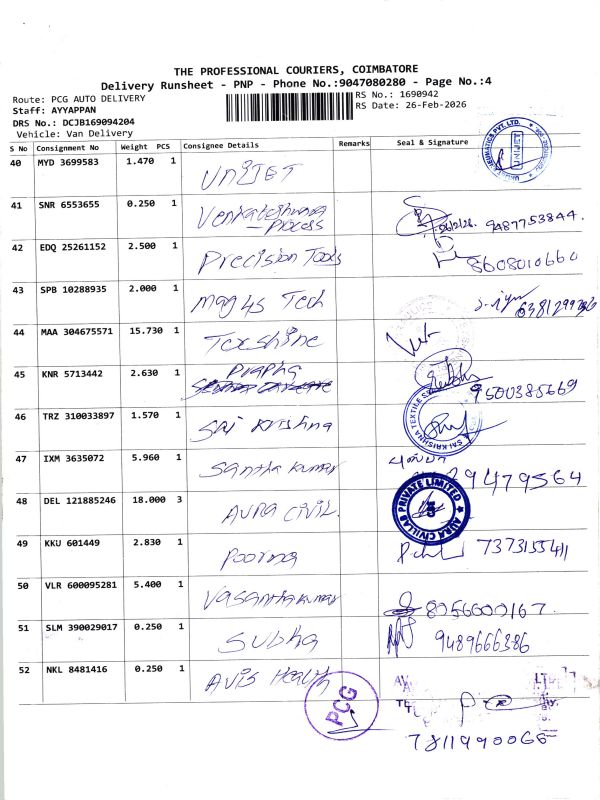 THE PROFESSIONAL COURIERS, COIMBATORE
Delivery Runsheet - PNP - Phone No.:9047080280 - Page No.:4
Route: PCG AUTO DELIVERY
RS No.: 1690942
Staff: AYYAPPAN
RS Date: 26-Feb-2026
DRS No.: DCJB169094204
Vehicle: Van Delivery
S No Consignment No Weight PCS Consignee Details Remarks Seal & Signature
40 MYD 3699583 1.470 1 UNIJET
41 SNR 6553655 0.250 1 Venkateshwara - Process 9487753844.
42 EDQ 25261152 2.500 1 Precision Tools 8608010660
43 SPB 10288935 2.000 1 Mag 4s Tech
44 MAA 304675571 15.730 1 Texshine
45 KNR 5713442 2.630 1 Prapha 9500385669
46 TRZ 310033897 1.570 1 Sai Krishna SAI KRISHNA TEXTILE
47 IXM 3635072 5.960 1 Santha Kumar 29479564
48 DEL 121885246 18.000 3 AURA CIVIL. AURA CIVILLAB PRIVATE LIMITED
49 KKU 601449 2.830 1 Poorna 7373155411
50 VLR 600095281 5.400 1 Vasanthakumar 8056600167.
51 SLM 390029017 0.250 1 Subha 9489666386
52 NKL 8481416 0.250 1 Avis Health
PCG
7811990066